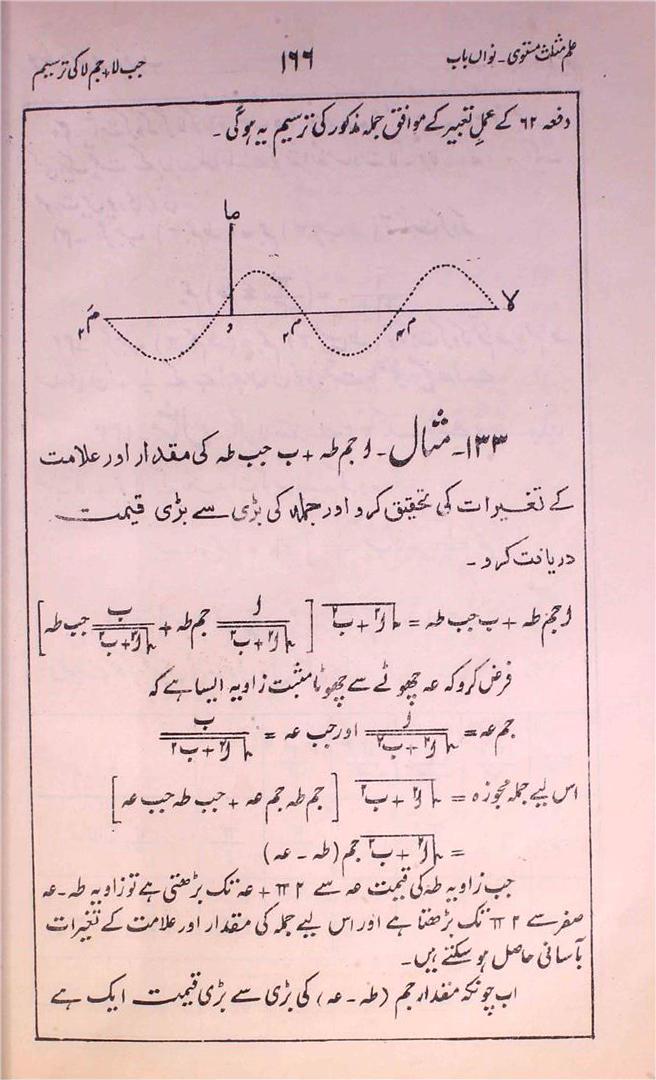 علم مثلث مستوی۔ نواں باب
۱۶۶
جب لا + جم لا کی ترسیم
دفعہ ۶۲ کے عمل تعبیر کے موافق جملہ مذکور کی ترسیم یہ ہوگی۔
ما
لا
و
۱۳۳۔ مثال۔ ا جم طہ + ب جب طہ کی مقدار اور علامت
کے تغیرات کی تحقیق کرو اور جملہ کی بڑی سے بڑی قیمت
دریافت کرو۔
ا جم طہ + ب جب طہ = √(ا۲ + ب۲) [ ا/√(ا۲ + ب۲) جم طہ + ب/√(ا۲ + ب۲) جب طہ ]
فرض کرو کہ عہ چھوٹے سے چھوٹا مثبت زاویہ ایسا ہے کہ
جم عہ = ا/√(ا۲ + ب۲) اور جب عہ = ب/√(ا۲ + ب۲)
اس لیے جملہ مجوزہ = √(ا۲ + ب۲) [ جم طہ جم عہ + جب طہ جب عہ ]
= √(ا۲ + ب۲) جم (طہ - عہ)
جب زاویہ طہ کی قیمت عہ سے ۲ π + عہ تک بڑھتی ہے تو زاویہ طہ - عہ
صفر سے ۲ π تک بڑھتا ہے اور اس لیے جملہ کی مقدار اور علامت کے تغیرات
بآسانی حاصل ہو سکتے ہیں۔
اب چونکہ مقدار جم (طہ - عہ) کی بڑی سے بڑی قیمت ایک ہے